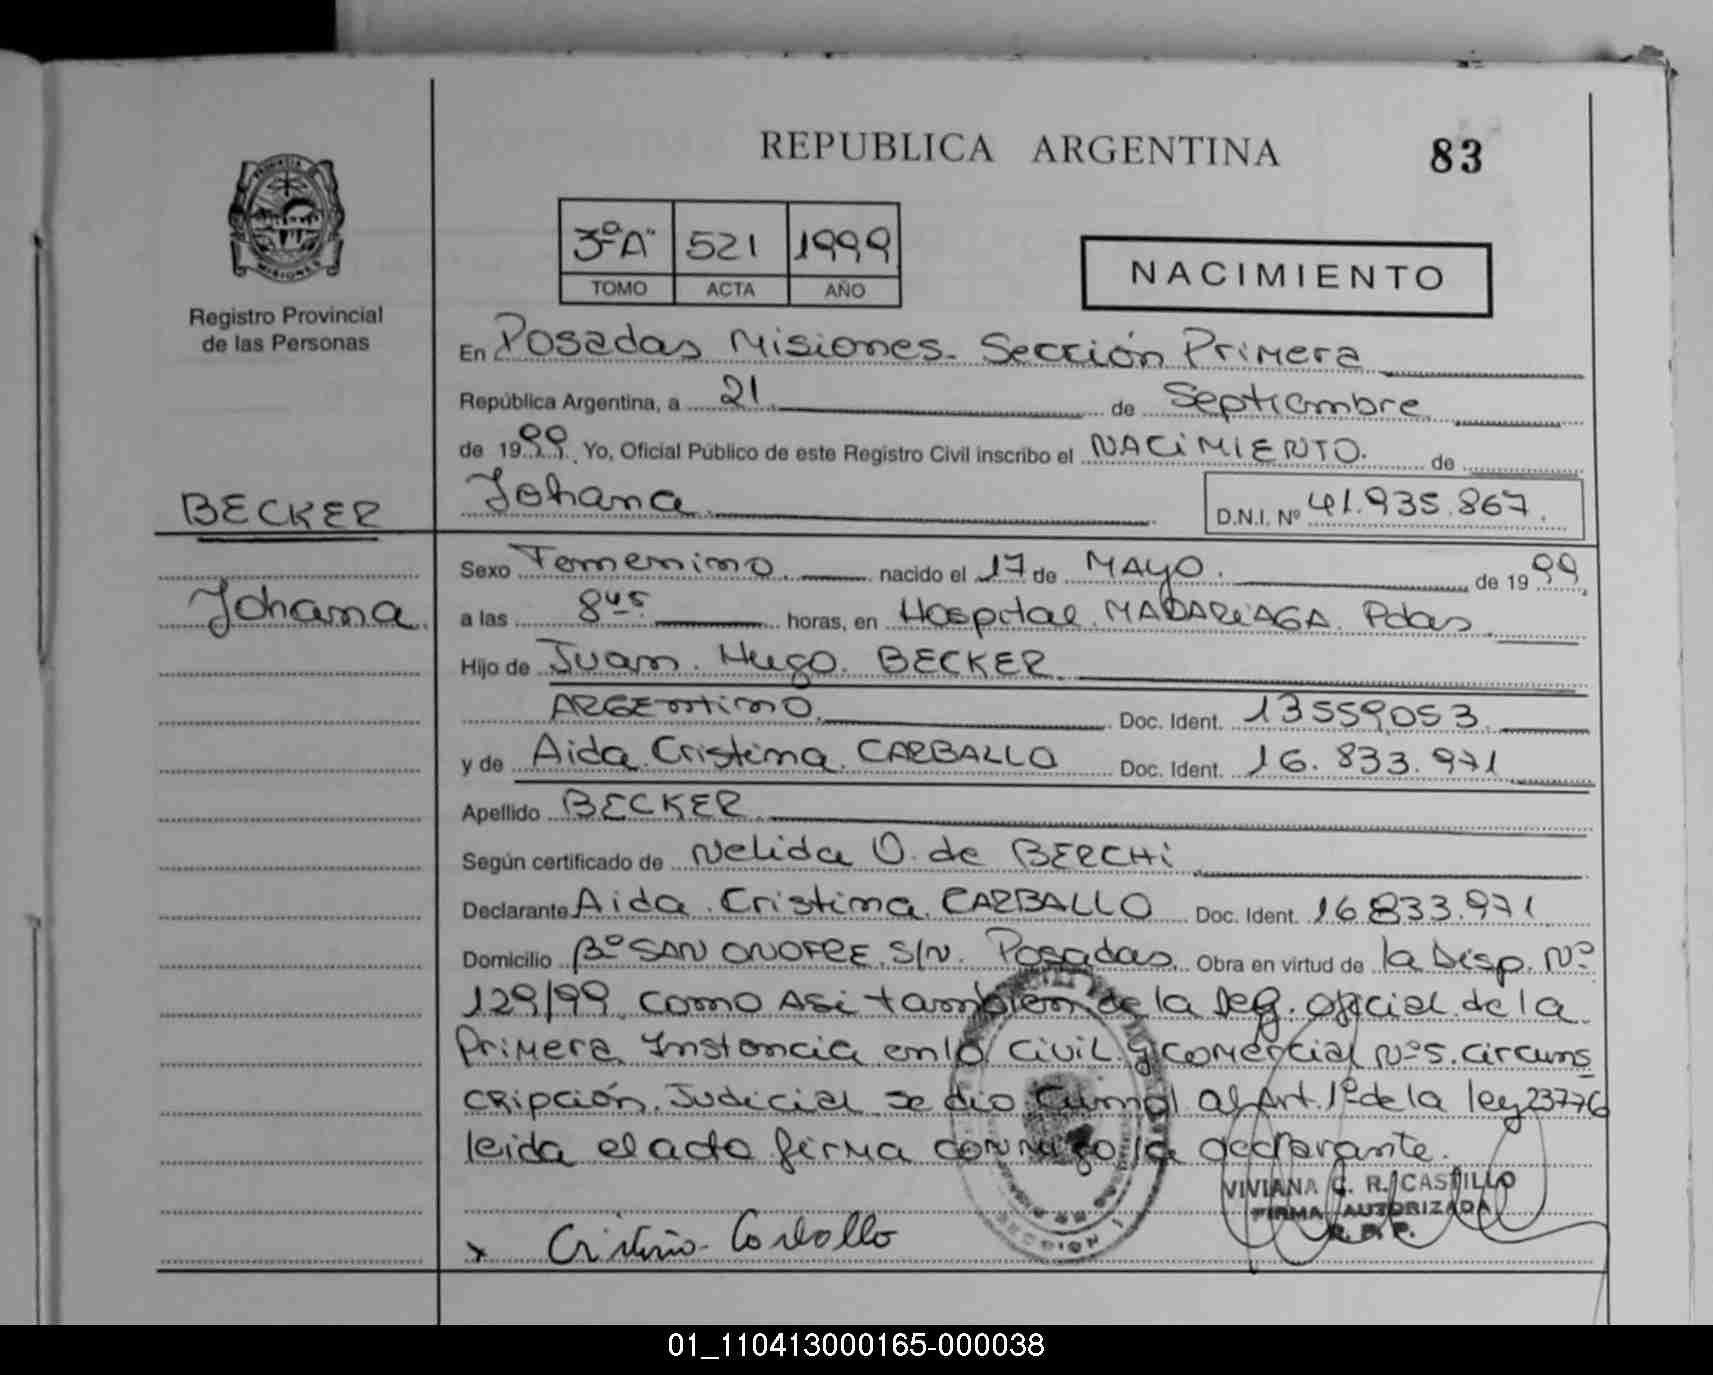 REPUBLICA ARGENTINA
83
3º"A" 521 1999
TOMO ACTA AÑO
NACIMIENTO
MISIONES
Registro Provincial
de las Personas
En Posadas Misiones. Sección Primera
República Argentina, a 21 de Septiembre
de 1999. Yo, Oficial Público de este Registro Civil inscribo el NACIMIENTO. de
BECKER
Johana
D.N.I. Nº 41.935.867.
Sexo Femenino nacido el 17 de MAYO. de 1999
Johana.
a las 8 45 horas, en Hospital. MADARIAGA. Pdas
Hijo de Juan. Hugo. BECKER
ARGEntino. Doc. Ident. 13559.053.
y de Aida. Cristina. CARBALLO Doc. Ident. 16.833.971
Apellido BECKER
Según certificado de Nelida O. de BERCHI
Declarante Aida. Cristina. CARBALLO Doc. Ident. 16.833.971
Domicilio Bº SAN ONOFRE. S/N. Posadas. Obra en virtud de la Disp. Nº
129/99. como Asi tambien de la Seg. oficial de la
Primera Instancia en lo Civil y Comercial Nº 5. circuns
cripción. Judicial se dio Cumpl al Art. 1º de la ley 23776
leida el acto firma conmigo la declarante.
VIVIANA C. R. CASTILLO
FIRMA AUTORIZADA
R. P. P.
x Cristina Carballo
SECCION 1
01_110413000165-000038